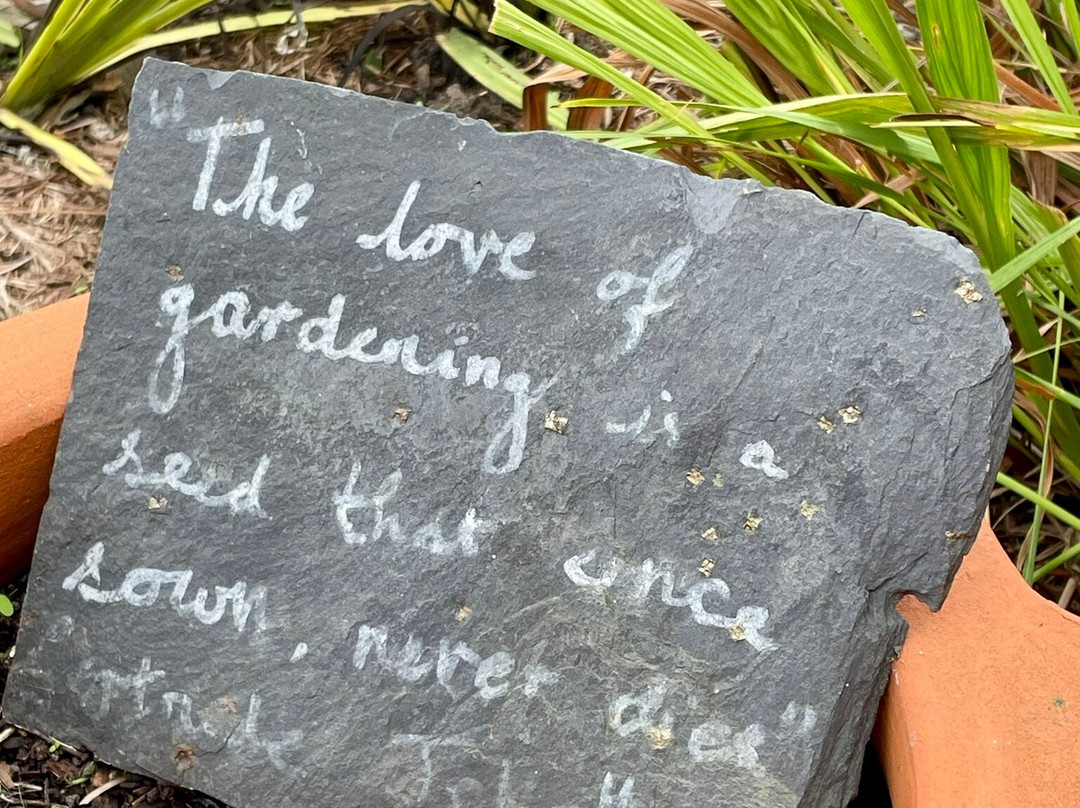 "The love of
gardening is a
seed that once
sown, never dies"